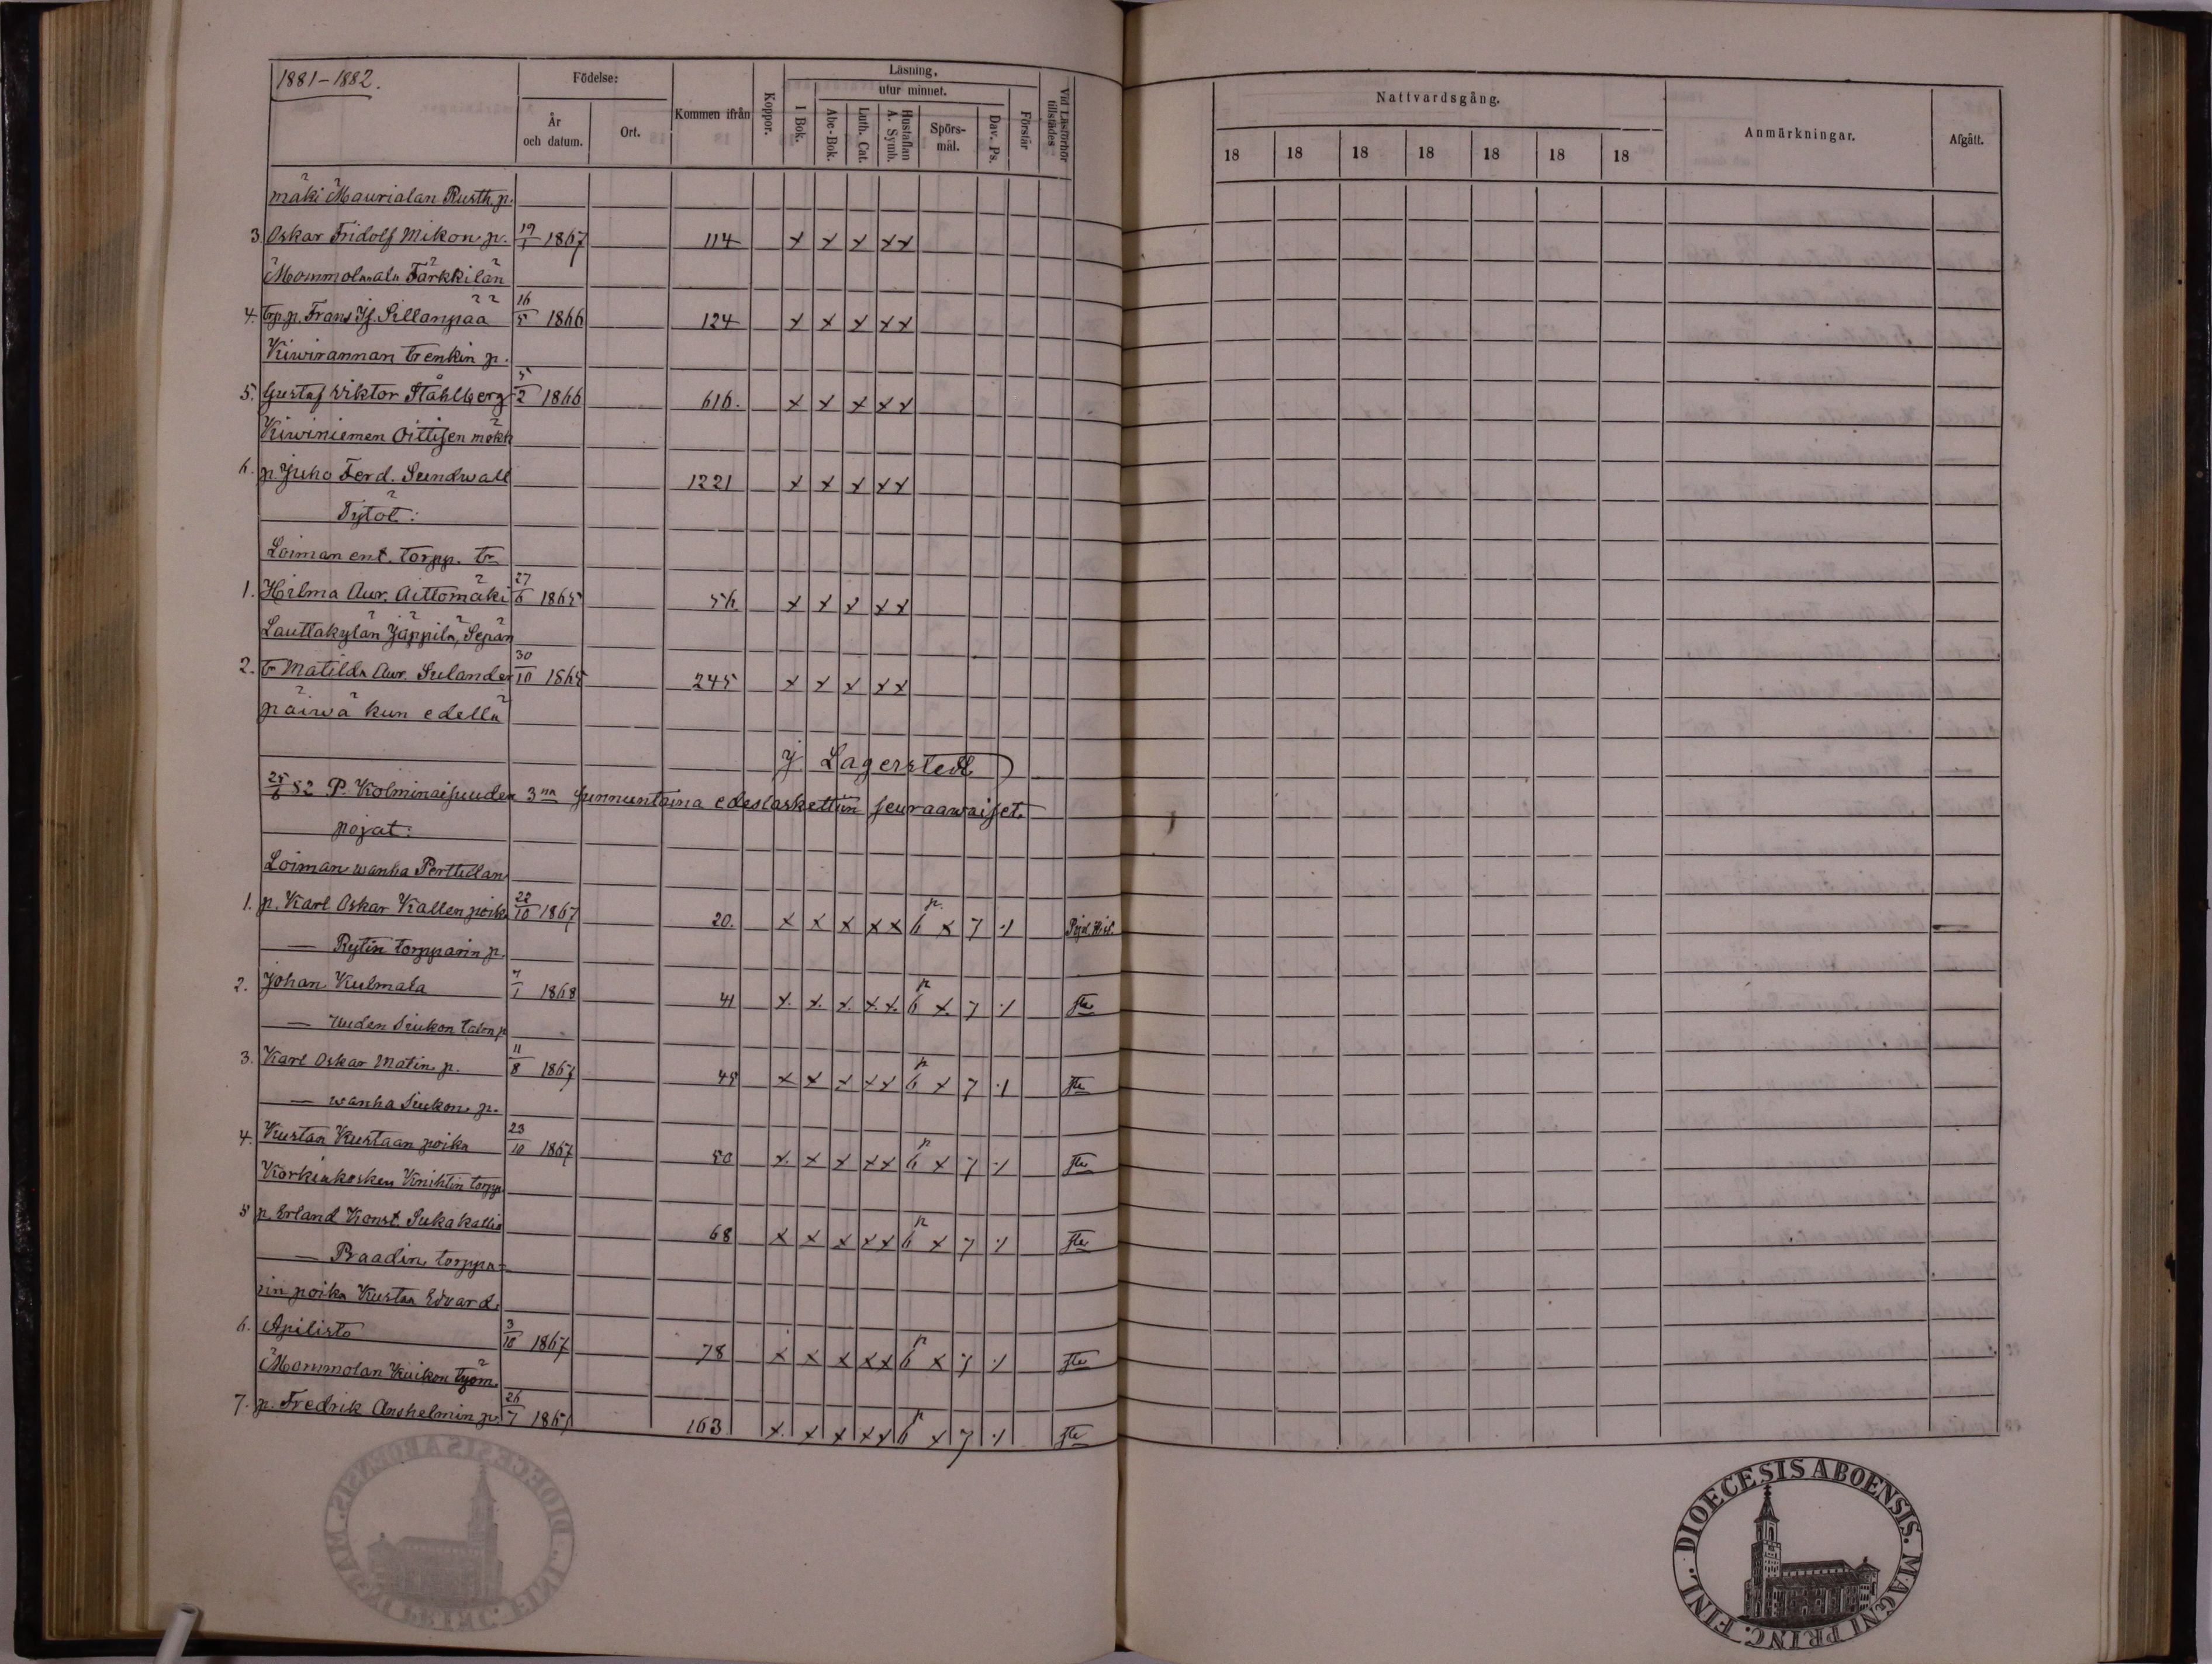 1881-1882.
Födelse:
År och datum.
Ort.
Kommen ifrån
Koppor.
Läsning.
utur minnet.
I Bok.
Abc-Bok.
Luth. Cat.
Hustaflan A. Symb.
Spörs-mål.
Dav. Ps.
Förstår
Vid Läsförhör tillstädes
Nattvardsgång.
18 18 18 18 18 18 18
Anmärkningar.
Afgått.
mäki Maurialan Rusth. p.
3. Oskar Fridolf Mikon p. 19/1 1867 114 x x x x x
Mommolan Tärkkilän
4. trp. p. Frans Ij. Sillanpää 16/5 1866 124 x x x x x
Kiwirannan trenkin p.
5. Gustaf Viktor Ståhlberg 5/2 1866 616. x x x x x
Kiwiniemen Oittisen mökk
6. p. Juho Ferd. Sundwall 1221 x x x x x
Tytöt:
Loiman ent. torpp. tr
1. Hilma Aur. Aittomäki 27/6 1865 56 x x x x x
Lauttakylän Jäppilä, Sepän
2. tr Matilda Aur. Sulander 30/10 1865 245 x x x x x
päiwä kun edellä
J Lagerstedt
25/6 82 P. Kolminaisuuden 3na sunnuntaina edeslaskettiin seuraawaiset.
pojat:
Loiman wanha Perttulan
1. p. Karl Oskar Kallen poika 22/10 1867 20. x x x x x p. 6 x 7 ./. Pijd. Hist.
— Rytin torpparin p.
2. Johan Kulmala 7/1 1868 41 x. x. x. x. x. p 6 x. 7 ./.
— Uuden Siukon talon p
3. Karl Oskar Matin p. 11/8 1867 45 x x x x x p 6 x 7 ./.
— wanha Siukon p.
4. Kustaa Kustaan poika 23/10 1867 50 x. x x x x p 6 x 7 ./.
Korkiakosken Knihtin torpp.
5 p. Erland Konst. Sukakallio 68 x x x x x p 6 x 7 ./.
— Praadin torppa-
rin poika Kustaa Edvard.
6. Apilisto 3/10 1867 78 x x x x x p 6 x 7 ./.
Mommolan Kuikon työm.
7. p. Fredrik Anshelmin p. 26/7 1867 163 x. x x x x p 6 x 7 ./.
DIOECESIS ABOENSIS. MAGNI PRINC. FINL.